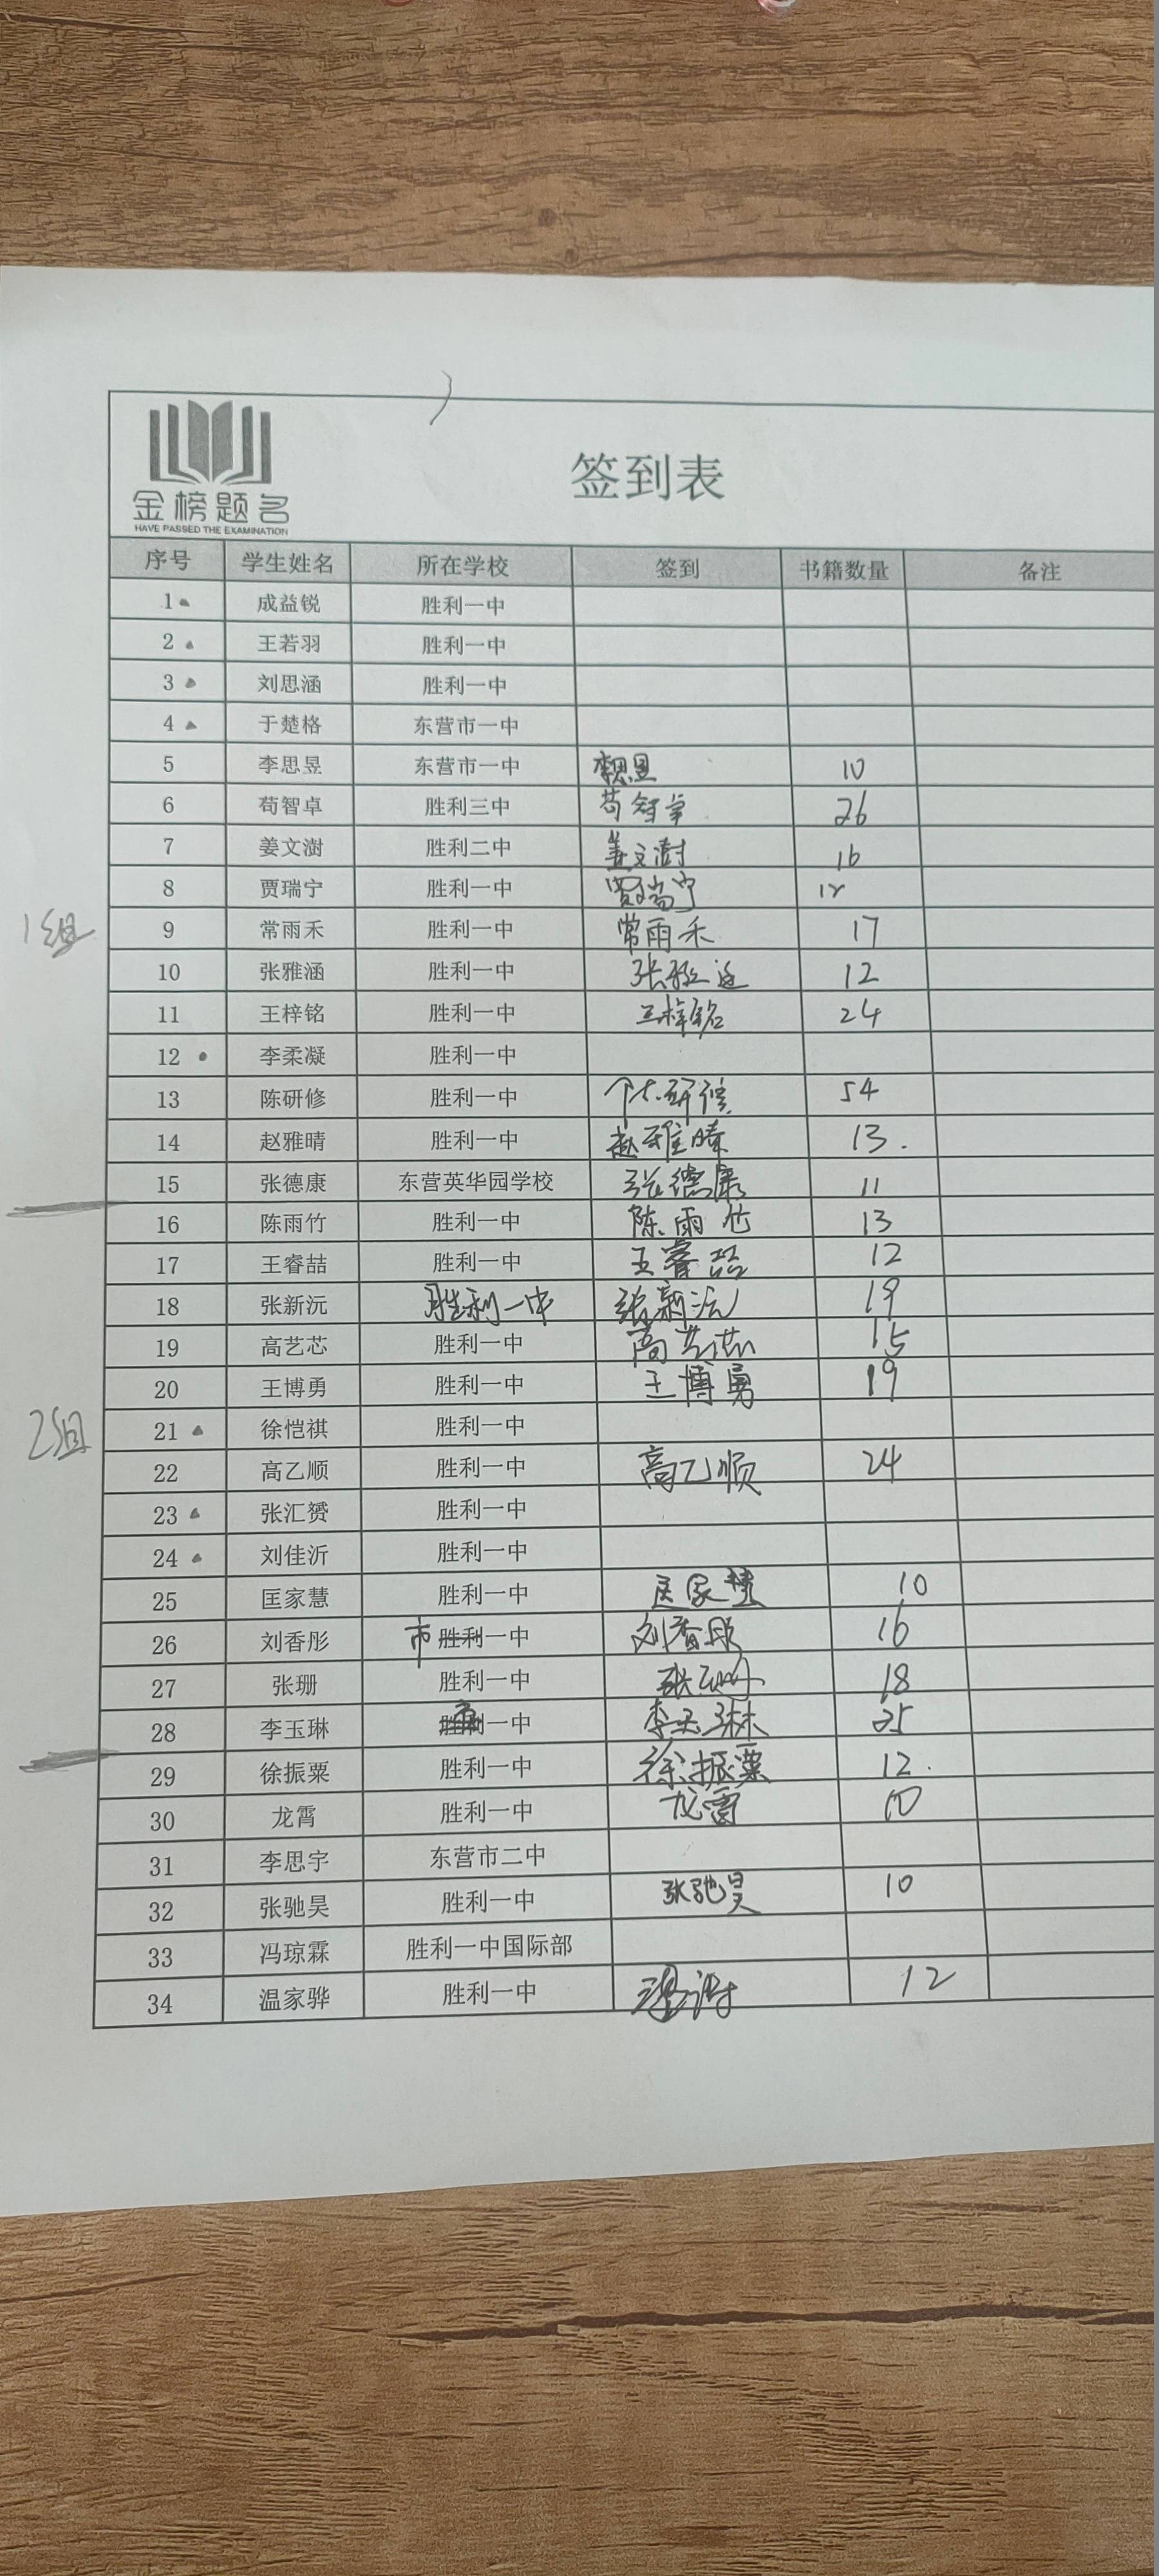 金榜题名
HAVE PASSED THE EXAMINATION
签到表
序号 学生姓名 所在学校 签到 书籍数量 备注
1 成益锐 胜利一中
2 王若羽 胜利一中
3 刘思涵 胜利一中
4 于楚格 东营市一中
5 李思昱 东营市一中 李思昱 10
6 苟智卓 胜利三中 苟智卓 26
7 姜文澍 胜利二中 姜文澍 16
8 贾瑞宁 胜利一中 贾瑞宁 12
1组
9 常雨禾 胜利一中 常雨禾 17
10 张雅涵 胜利一中 张雅涵 12
11 王梓铭 胜利一中 王梓铭 24
12 李柔凝 胜利一中
13 陈研修 胜利一中 陈研修 54
14 赵雅晴 胜利一中 赵雅晴 13.
15 张德康 东营英华园学校 张德康 11
16 陈雨竹 胜利一中 陈雨竹 13
17 王睿喆 胜利一中 王睿喆 12
18 张新沅 胜利一中 张新沅 19
19 高艺芯 胜利一中 高艺芯 15
20 王博勇 胜利一中 王博勇 19
2组
21 徐恺祺 胜利一中
22 高乙顺 胜利一中 高乙顺 24
23 张汇赟 胜利一中
24 刘佳沂 胜利一中
25 匡家慧 胜利一中 匡家慧 10
26 刘香彤 市胜利一中 刘香彤 16
27 张珊 胜利一中 张珊 18
28 李玉琳 胜利一中 李玉琳 25
29 徐振粟 胜利一中 徐振粟 12.
30 龙霄 胜利一中 龙霄 10
31 李思宇 东营市二中
32 张驰昊 胜利一中 张驰昊 10
33 冯琼霖 胜利一中国际部
34 温家骅 胜利一中 12